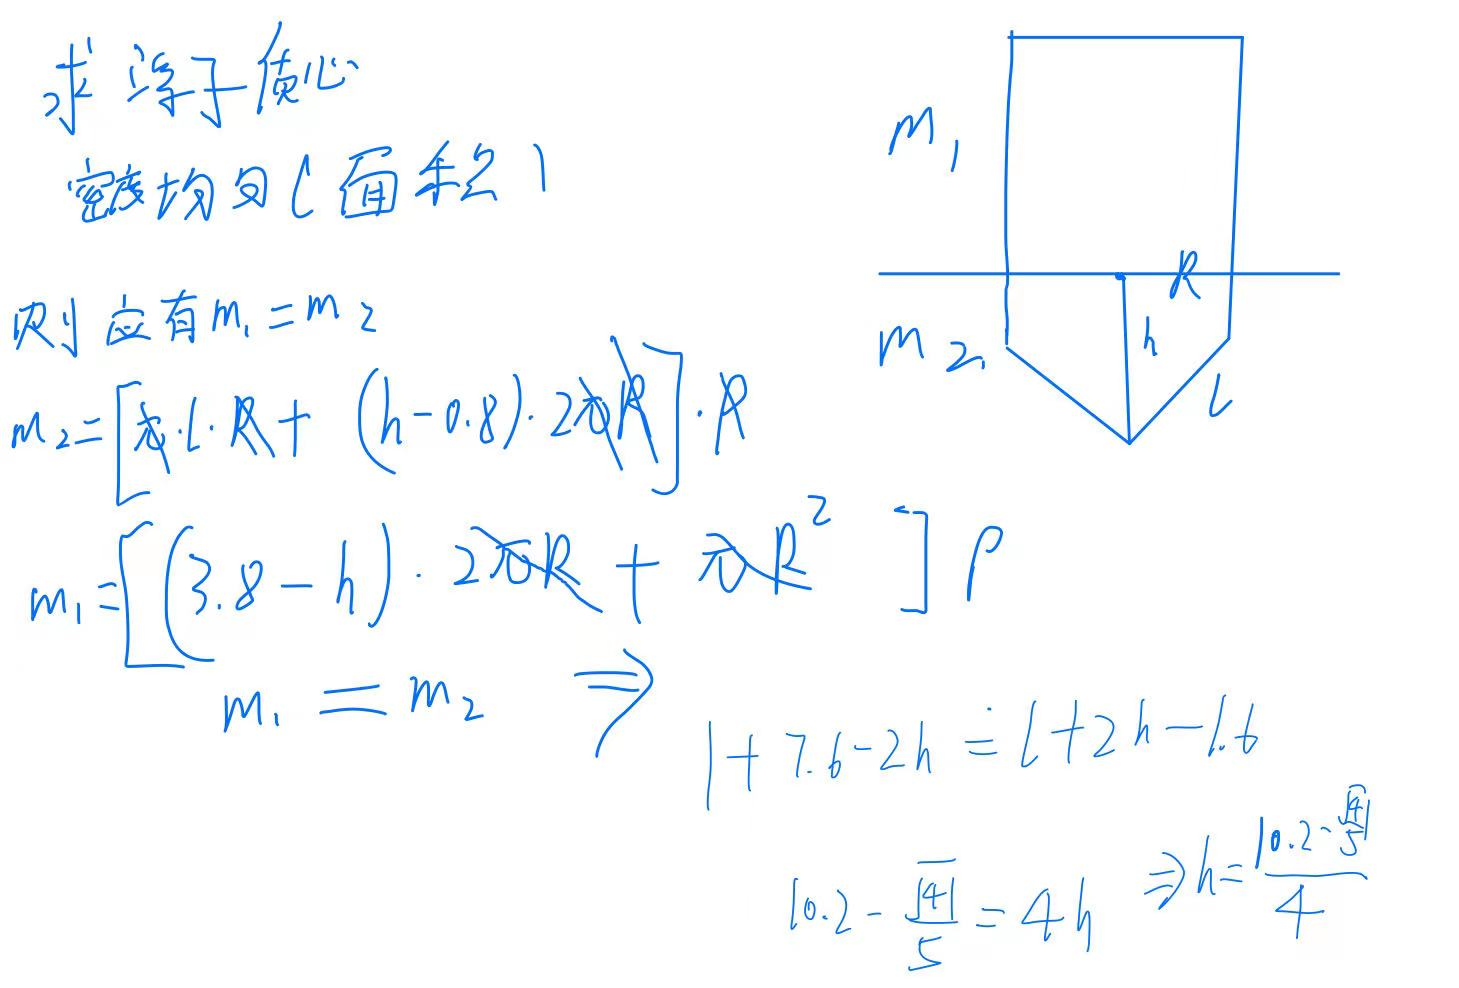 求浮子质心
密度均匀(面积)
则应有m₁=m₂
m₂=[π·l·R+(h-0.8)·2πR]·ρ
m₁=[(3.8-h)·2πR+πR²]ρ
m₁=m₂ ⇒
1+7.6-2h=l+2h-1.6
10.2-√41/5=4h ⇒h=(10.2-√41/5)/4
m₁
R
m₂
h
l